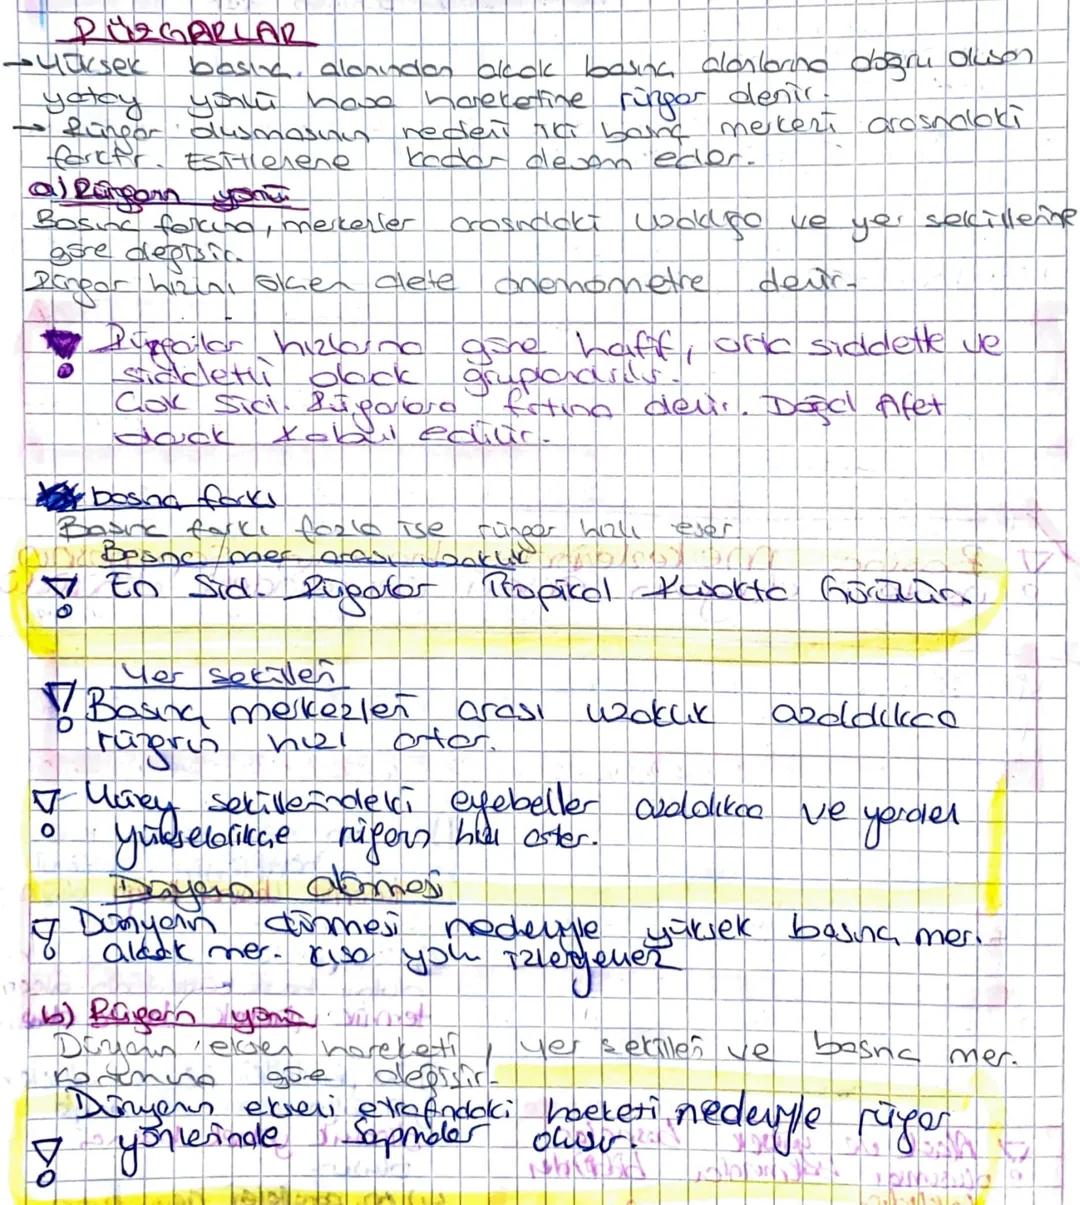 RÜZGARLAR
→ Yüksek basınç alanından alçak basınç alanlarına doğru oluşan
yatay yönlü hava hareketine rüzgar denir.
→ Rüzgar oluşmasının nedeni iki basınç merkezi arasındaki
farktır. Eşitlenene kadar devam eder.
a) Rüzgarın yönü
Basınç farkına, merkezler arasındaki uzaklığa ve yer şekillerine
göre değişir.
Rüzgar hızını ölçen alete anemometre denir.
Rüzgarlar hızlarına göre hafif, orta şiddette ve
şiddetli olarak gruplandırılır.
Çok Şid. Rüzgarlara fırtına denir. Doğal Afet
olarak kabul edilir.
basınç farkı
Basınç farkı fazla ise rüzgar hızlı eser
Basınç mer arası uzaklık
En Şid. Rüzgarlar Tropikal Kuşakta Görülür.
Yer şekilleri
Basınç merkezleri arası uzaklık azaldıkça
rüzgarın hızı artar.
Yüzey şekillerindeki engebeler azaldıkça ve yerden
yükseldikçe rüzgarın hızı artar.
Dünyanın dönmesi
Dünyanın dönmesi nedeniyle yüksek basınç mer.
alçak mer. kısa yolu izleyemez
b) Rüzgarın yönü
Dünyanın eksen hareketi, yer şekilleri ve basınç mer.
konumuna göre değişir.
Dünyanın ekseni etrafındaki hareketi nedeniyle rüzgar
yönlerinde sapmalar oluşur.